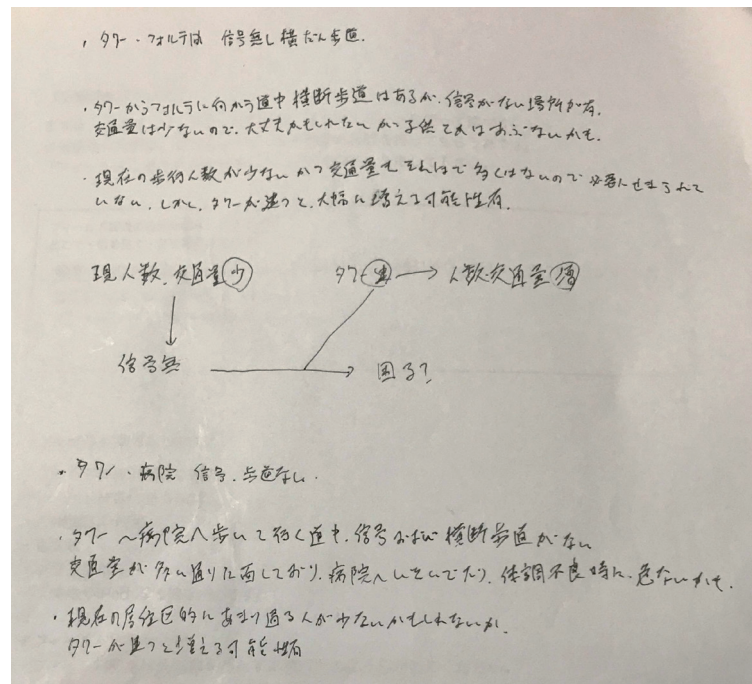 ・タワー・フォルテは 信号無し横だん歩道.
・タワーからフォルテに向かう道中 横断歩道はあるが、信号がない場所が有.
交通量は少ないので、大丈夫かもしれないが子供とかはあぶないかも.
・現在の歩行人数が少ないかつ交通量もそれほど多くはないので必要にせまられて
いない.しかし、タワーが建つと、大幅に増える可能性有.
現 人数、交通量少 タワー建 → 人数・交通量増
信号無 困る?
・タワー・病院 信号、歩道なし.
・タワー〜病院へ歩いて行く道中、信号および横断歩道がない
交通量が多い通りに面しており、病院へいそいでたり、体調不良時に、危ないかも.
・現在の居住区的にあまり通る人が少ないかもしれないが、
タワーが建つと増える可能性有